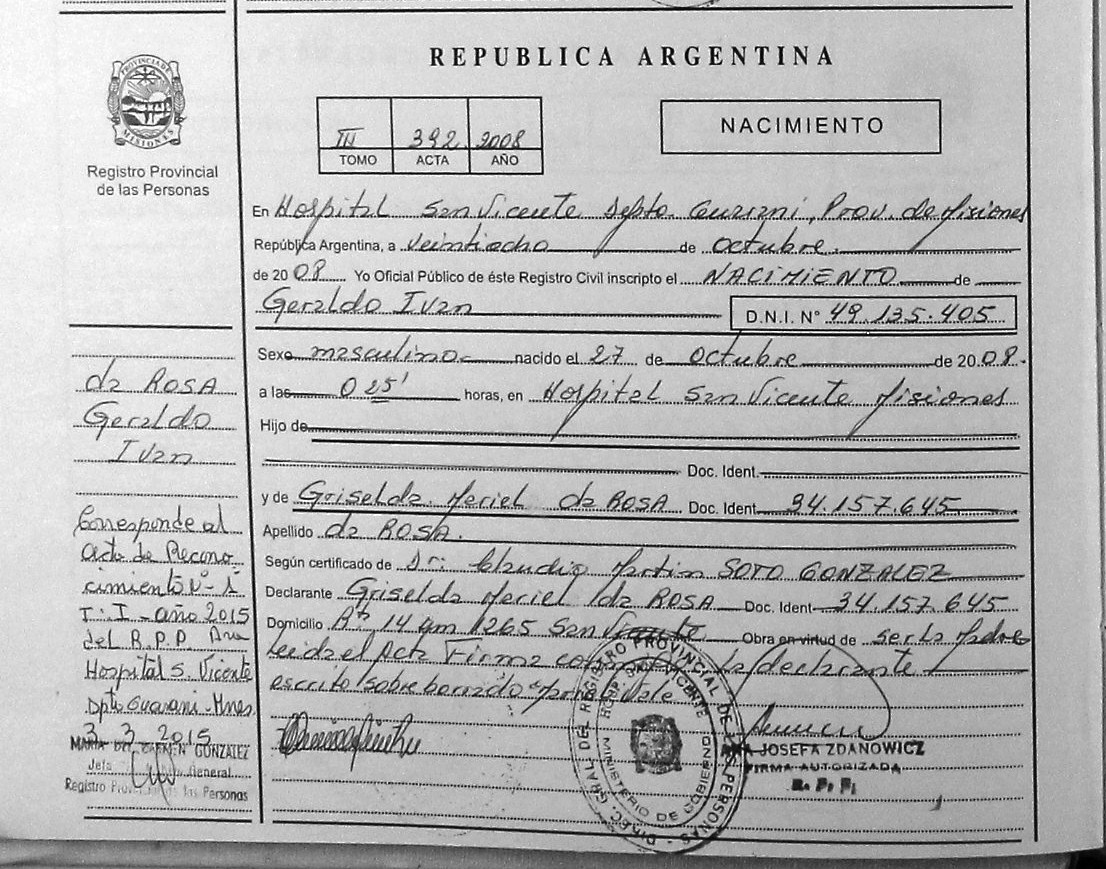 REPUBLICA ARGENTINA
PROVINCIA DE
MISIONES
Registro Provincial
de las Personas
III 392 2008
TOMO ACTA AÑO
NACIMIENTO
En Hospital San Vicente Depto. Guarani, Prov. de Misiones
República Argentina, a veintiocho de octubre
de 2008 Yo Oficial Público de éste Registro Civil inscripto el NACIMIENTO de
Geraldo Ivan D.N.I. N° 49.135.405
Sexo masculino nacido el 27 de octubre de 2008.
a las 0 25' horas, en Hospital San Vicente Misiones
Hijo de
Doc. Ident.
y de Griselda Meriel da ROSA Doc. Ident. 34.157.645
Apellido da ROSA.
Según certificado de Dr. Claudio Martin SOTO GONZALEZ
Declarante Griselda Meriel da ROSA Doc. Ident. 34.157.645
Domicilio 14 Km 1265 San Vicente Obra en virtud de ser la Madre
Leida el Acta Firma la declarante
escrito sobre borrado Vale
da ROSA
Geraldo
Ivan
Corresponde al
Acta de Recono
cimiento N°- 1
T: I - año 2015
del R.P.P.
Hospital S. Vicente
Dpto Guarani - Mnes
3 3 2015
MARIA DEL CARMEN GONZALEZ
Jefa General
Registro Provincial de las Personas
DIREC. GRAL DEL REGISTRO PROVINCIAL DE LAS PERSONAS
HOSP. SAN VICENTE
MINISTERIO DE GOBIERNO
ANA JOSEFA ZDANOWICZ
FIRMA AUTORIZADA
R. P. P.